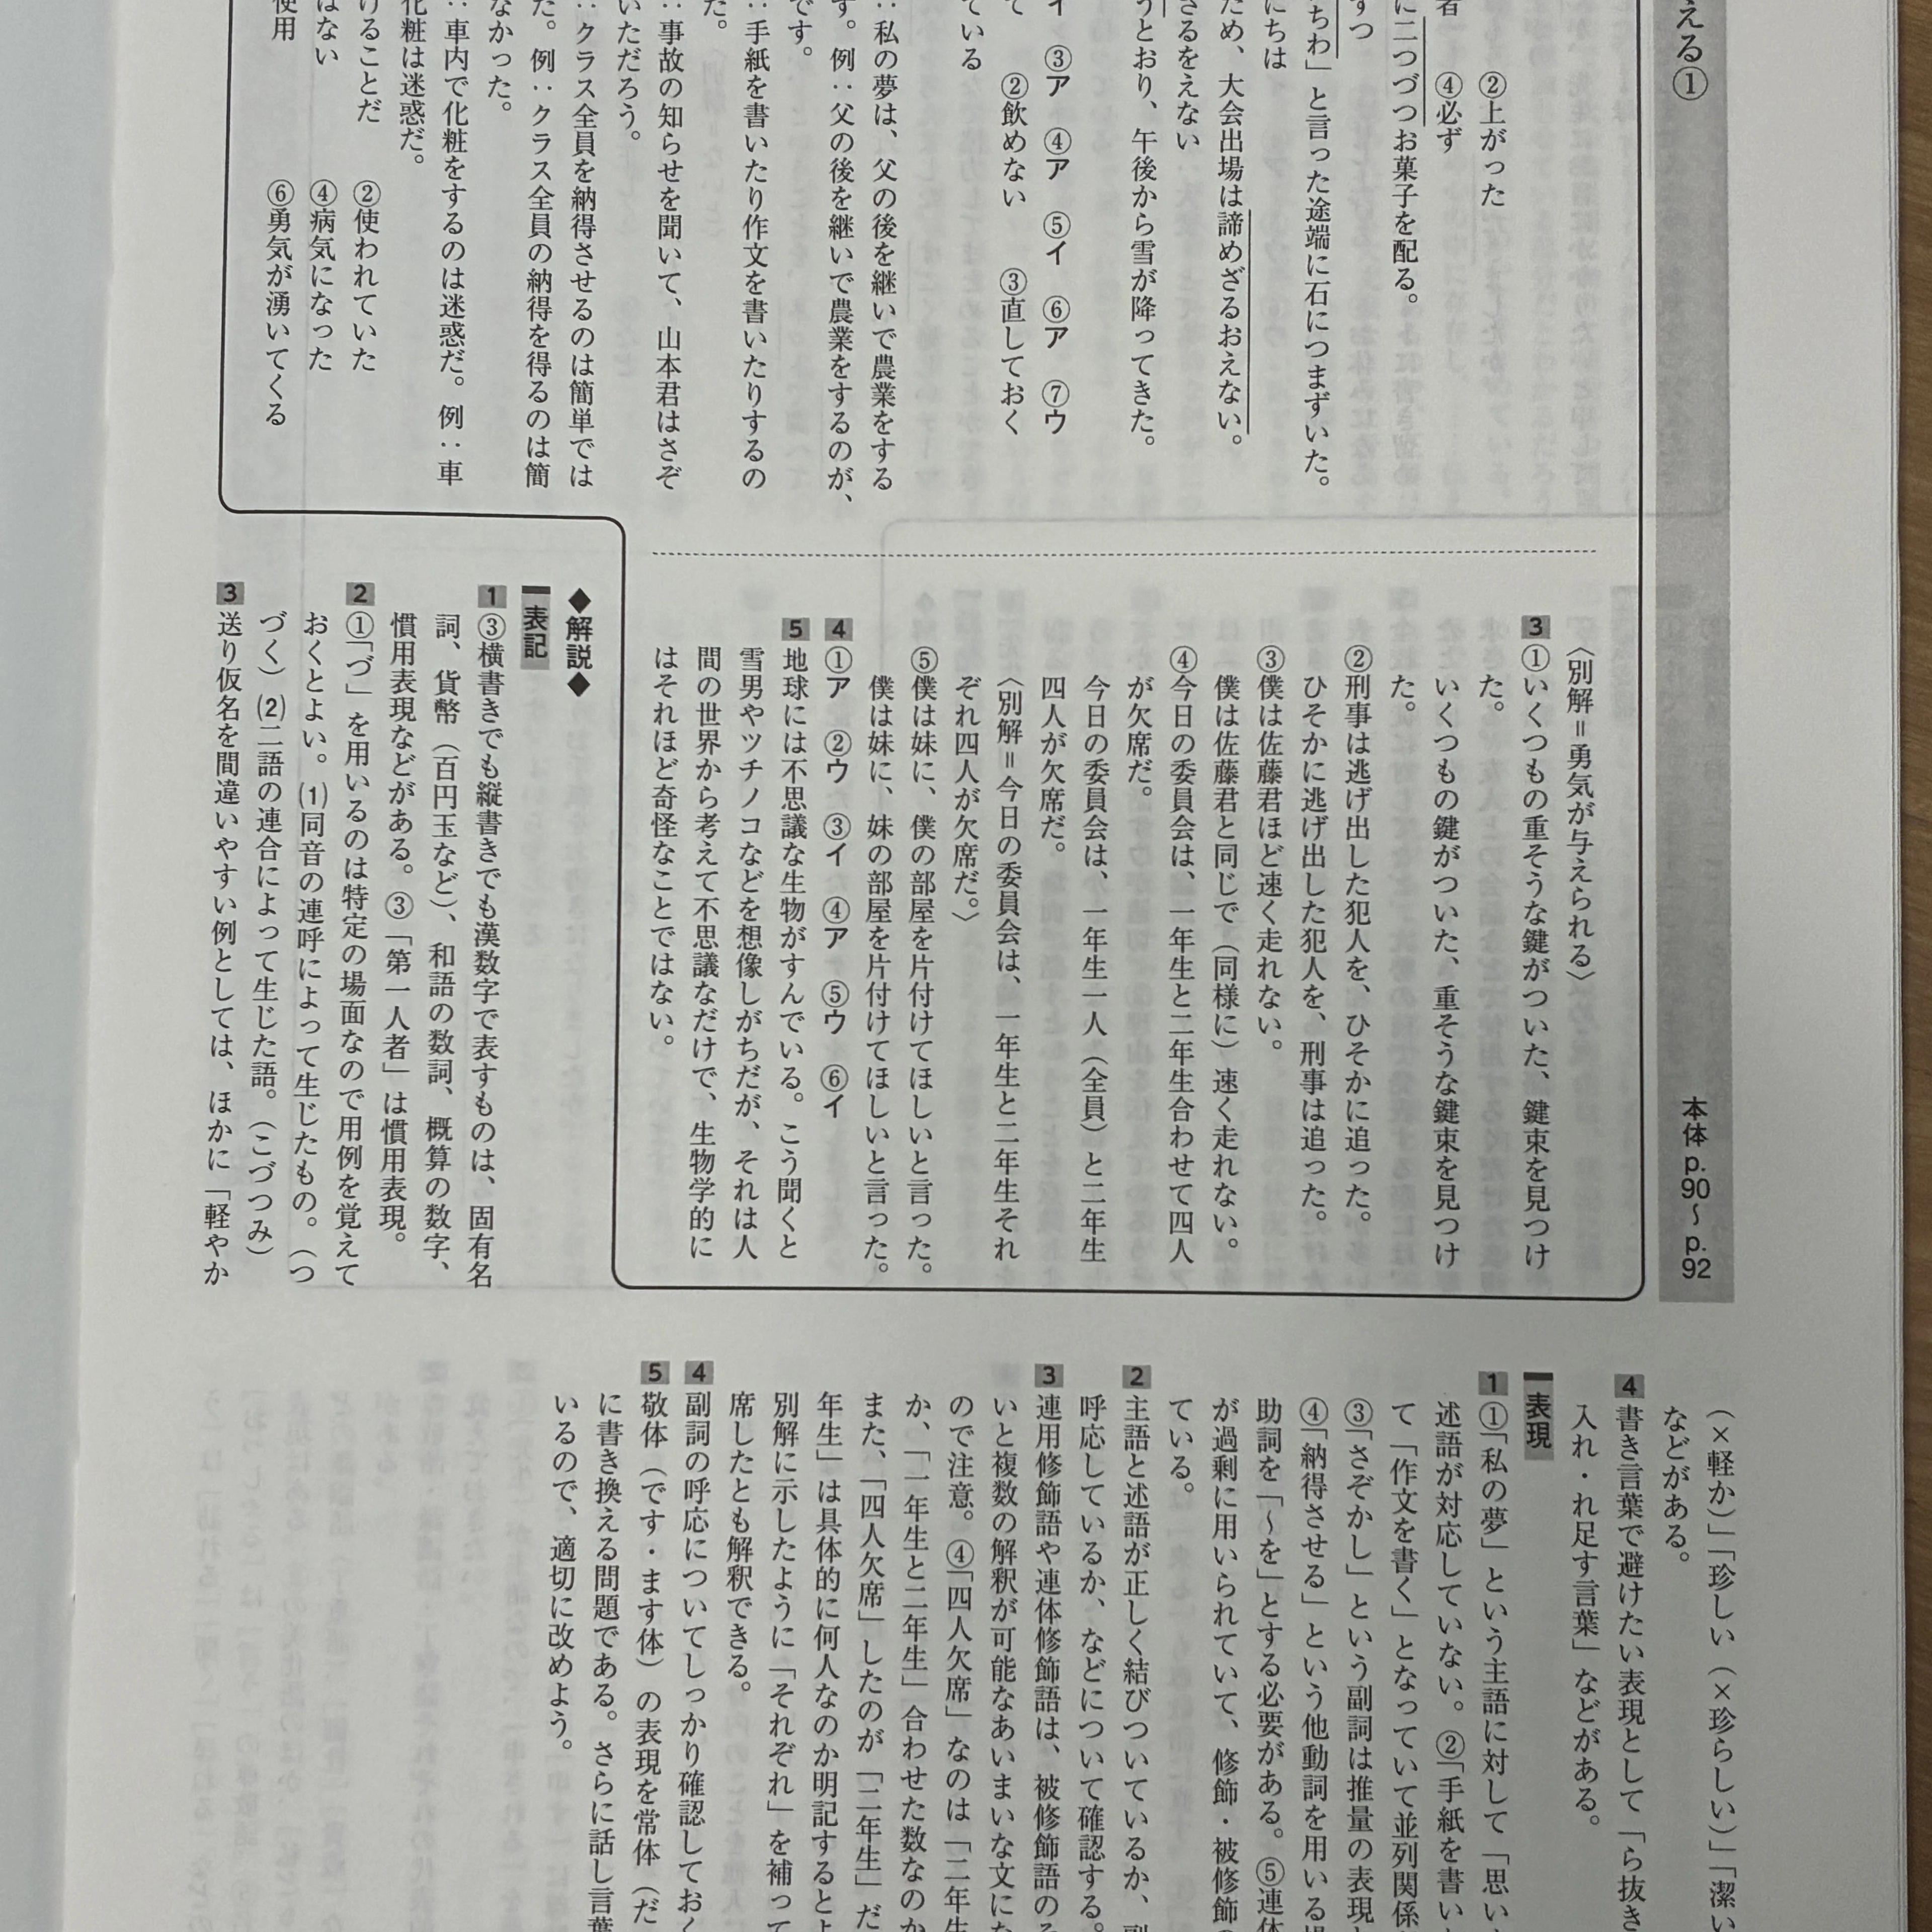 える①
本体 p.90～p.92
者
②上がった
④必ず
に二つづつお菓子を配る。
ずつ
ちわ」と言った途端に石につまずいた。
にちは
ため、大会出場は諦めざるおえない。
ざるをえない
うとおり、午後から雪が降ってきた。
イ ③ア ④ア ⑤イ ⑥ア ⑦ウ
て ②飲めない ③直しておく
ている
：私の夢は、父の後を継いで農業をする
す。例：父の後を継いで農業をするのが、
です。
：手紙を書いたり作文を書いたりするの
た。
：事故の知らせを聞いて、山本君はさぞ
いただろう。
：クラス全員を納得させるのは簡単では
た。例：クラス全員の納得を得るのは簡
なかった。
：車内で化粧をするのは迷惑だ。例：車
化粧は迷惑だ。
けることだ ②使われていた
はない ④病気になった
使用 ⑥勇気が湧いてくる
〈別解＝勇気が与えられる〉
3 ①いくつもの重そうな鍵がついた、鍵束を見つけ
た。
いくつもの鍵がついた、重そうな鍵束を見つけ
た。
②刑事は逃げ出した犯人を、ひそかに追った。
ひそかに逃げ出した犯人を、刑事は追った。
③僕は佐藤君ほど速く走れない。
僕は佐藤君と同じで（同様に）速く走れない。
④今日の委員会は、一年生と二年生合わせて四人
が欠席だ。
今日の委員会は、一年生一人（全員）と二年生
四人が欠席だ。
〈別解＝今日の委員会は、一年生と二年生それ
ぞれ四人が欠席だ。〉
⑤僕は妹に、僕の部屋を片付けてほしいと言った。
僕は妹に、妹の部屋を片付けてほしいと言った。
4 ①ア ②ウ ③イ ④ア ⑤ウ ⑥イ
5 地球には不思議な生物がすんでいる。こう聞くと
雪男やツチノコなどを想像しがちだが、それは人
間の世界から考えて不思議なだけで、生物学的に
はそれほど奇怪なことではない。
◆解説◆
表記
1 ③横書きでも縦書きでも漢数字で表すものは、固有名
詞、貨幣（百円玉など）、和語の数詞、概算の数字、
慣用表現などがある。③「第一人者」は慣用表現。
2 ①「づ」を用いるのは特定の場面なので用例を覚えて
おくとよい。(1)同音の連呼によって生じたもの。（つ
づく）(2)二語の連合によって生じた語。（こづつみ）
3 送り仮名を間違いやすい例としては、ほかに「軽やか
（×軽か）」「珍しい（×珍らしい）」「潔い
などがある。
4 書き言葉で避けたい表現として「ら抜き
入れ・れ足す言葉」などがある。
表現
1 ①「私の夢」という主語に対して「思い
述語が対応していない。②「手紙を書い
て「作文を書く」となっていて並列関係
③「さぞかし」という副詞は推量の表現
④「納得させる」という他動詞を用いる
助詞を「～を」とする必要がある。⑤連体
が過剰に用いられていて、修飾・被修飾
ている。
2 主語と述語が正しく結びついているか、副
呼応しているか、などについて確認する。
3 連用修飾語や連体修飾語は、被修飾語の
いと複数の解釈が可能なあいまいな文にな
ので注意。④「四人欠席」なのは「二年生
か、「一年生と二年生」合わせた数なのか
また、「四人欠席」したのが「二年生」だ
年生」は具体的に何人なのか明記するとよ
別解に示したように「それぞれ」を補って
席したとも解釈できる。
4 副詞の呼応についてしっかり確認しておく
5 敬体（です・ます体）の表現を常体（だ
に書き換える問題である。さらに話し言葉
いるので、適切に改めよう。